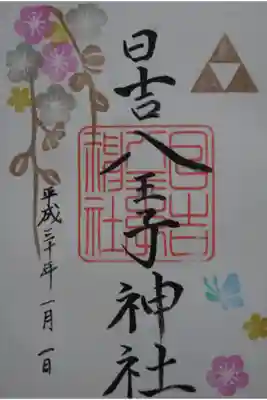 日吉八王子神社
平成三十年一月一日
日吉八王子神社